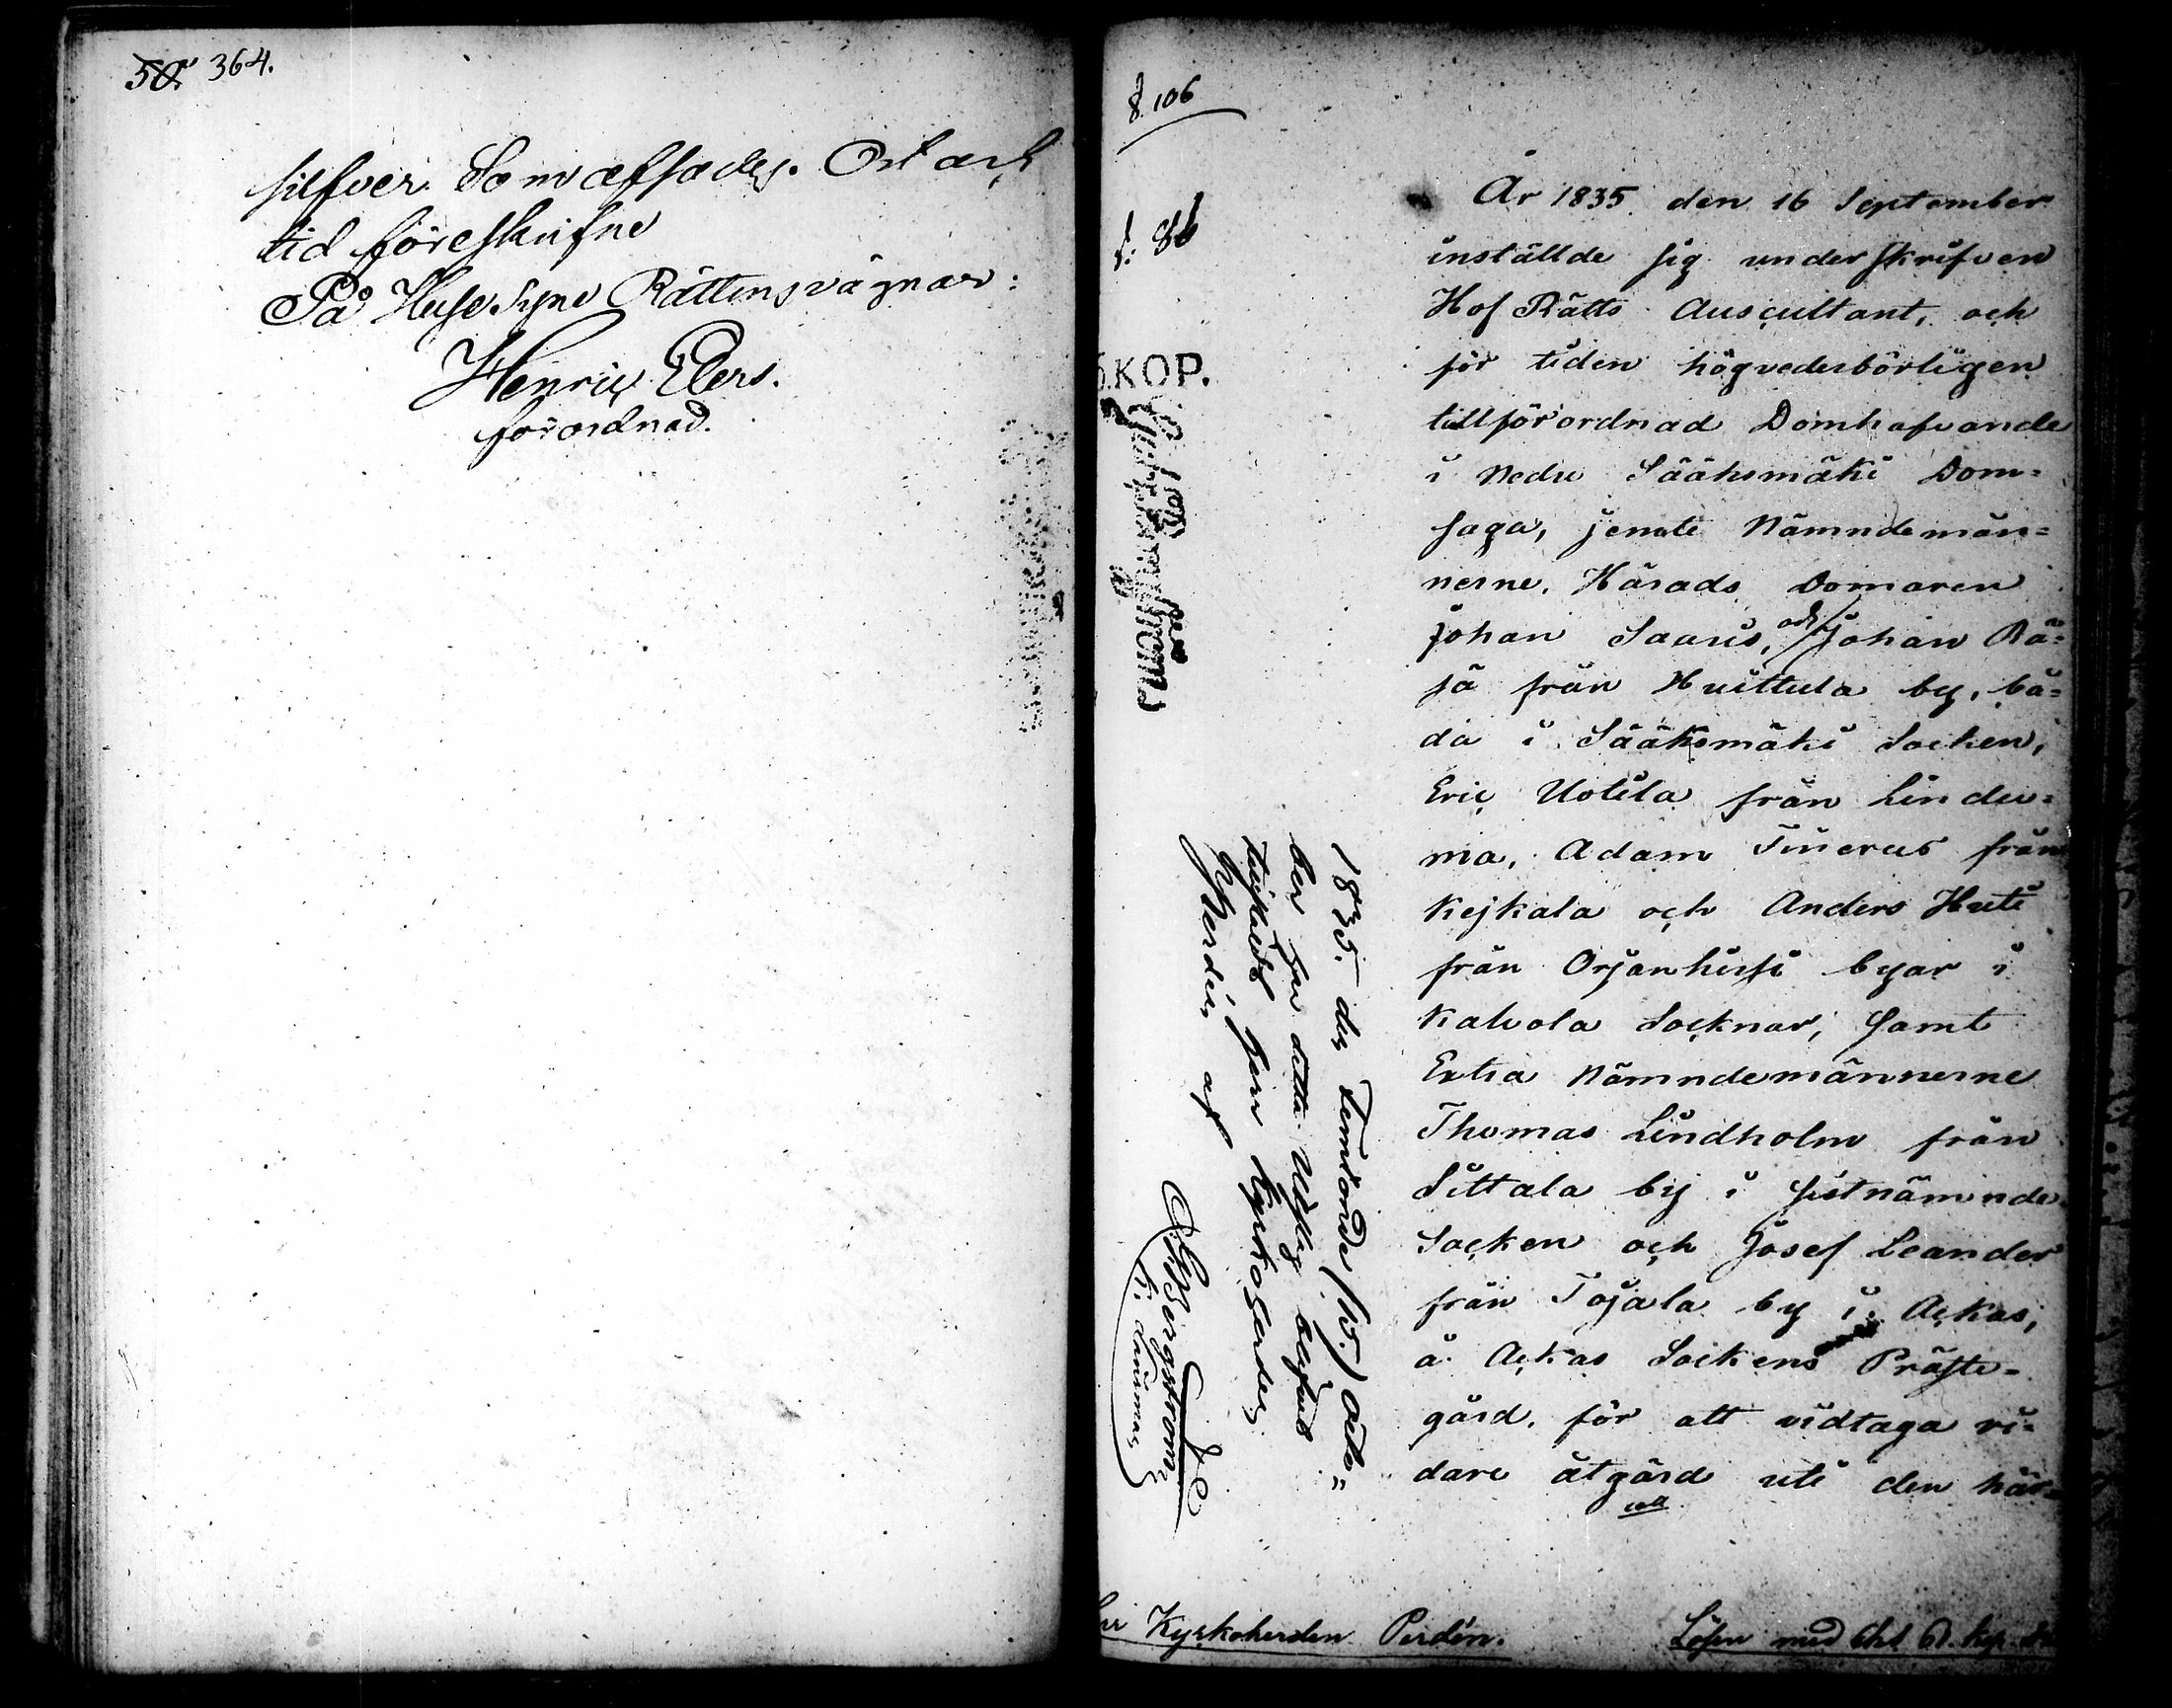 50. 364.
silfver. Som afsades. Ort och
tid föreskrifne
På HuseSyne Rättens vägnar:
Henric Elers.
förordnad.
§. 106
KOP.
År 1835 den 16 September
inställde sig underskrifven
HofRätts Auscultant, och
för tiden högvederbörligen
tillförordnad Domhafvande
i Nedre Sääksmäki Dom=
saga, jemte Nämndemän=
nerne, Härads Domaren
Johan Sauris, och Johan Rä=
sä från Huittula by, bå=
da i Sääksmäki Socken,
Eric Uotila från Lindu=
ma, Adam Tinerus från
Kejkala och Anders Huti
från Orjanhirsi byar i
Kalvola Socknar, samt
Extra Nämndemännerne
Thomas Lindholm från
Sittala by i sistnämnde
Socken och Josef Leander
från Tojala by i Ackas,
å Ackas Sockens Präste=
gård, för att vidtaga vi=
dare åtgärd uti den här=
1835. den Femtonde (15.) Octo=
ber har detta Utslag blifvit
Kyrkoherden
Perdén af
Bergstrom
Länsman
Kyrkoherden Perdén.
Lösen med